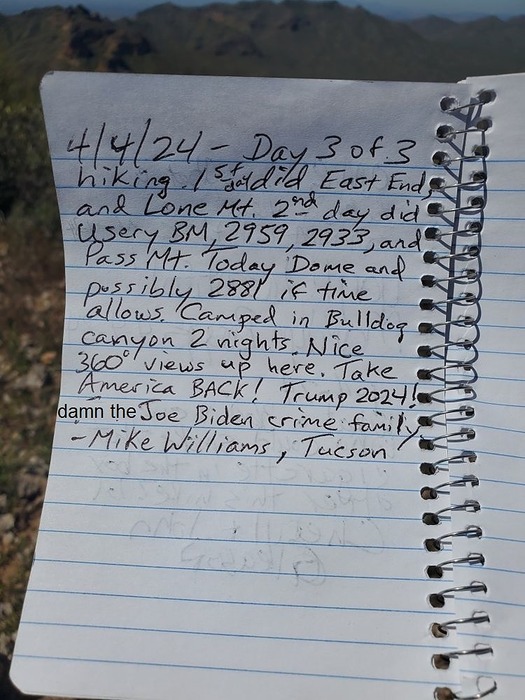 4/4/24 - Day 3 of 3
hiking. 1st day did East End,
and Lone Mt. 2nd day did
Usery BM, 2959, 2933, and
Pass Mt. Today Dome and
possibly 2881 if time
allows. Camped in Bulldog
canyon 2 nights. Nice
360° views up here. Take
America BACK! Trump 2024!
damn the Joe Biden crime family
-Mike Williams, Tucson